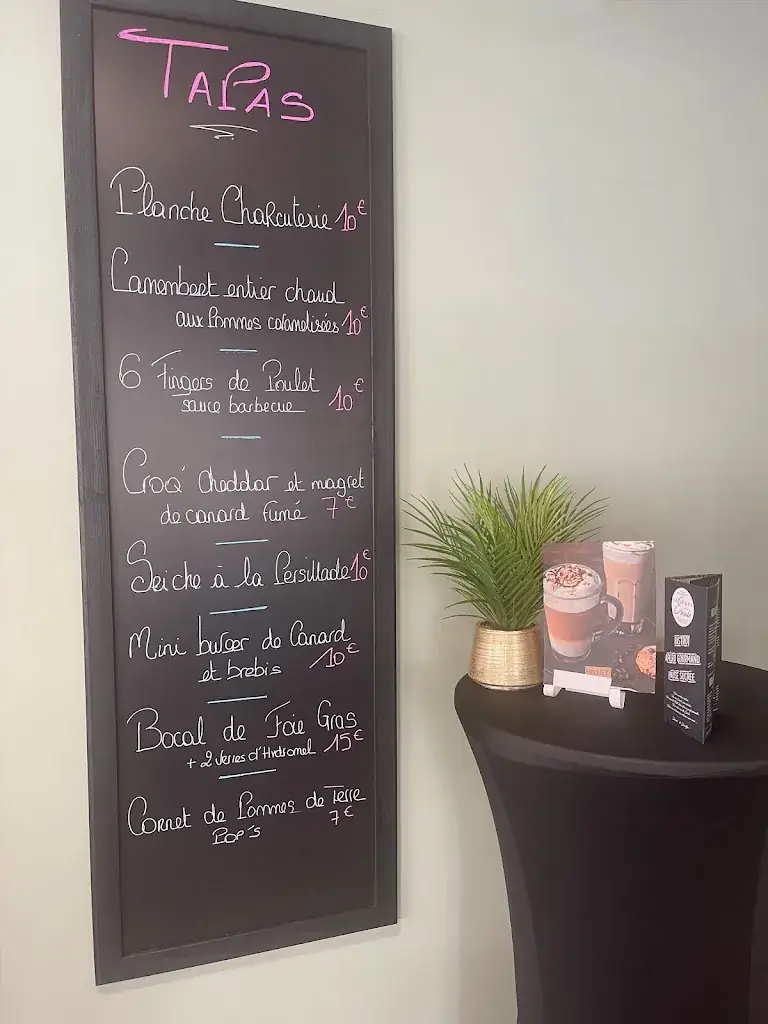 TAPAS
Planche Charcuterie 10€
Camembert entier chaud
aux Pommes caramelisées 10€
6 Fingers de Poulet
sauce barbecue 10€
Croq' cheddar et magret
de canard fumé 7€
Seiche à la Persillade 10€
Mini burger de Canard
et brebis 10€
Bocal de Foie Gras
+ 2 Verres d'Hydromel 15€
Cornet de Pommes de Terre
POP'S 7€
BISTROT